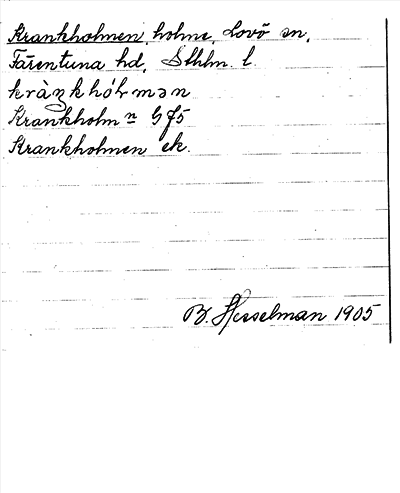 Krankholmen, holme, Lovö sn,
Färentuna hd, Sthlm. l.
kràŋkhólmən
Krankholmn̄ Gf5
Krankholmen ek.
B. Hesselman 1905